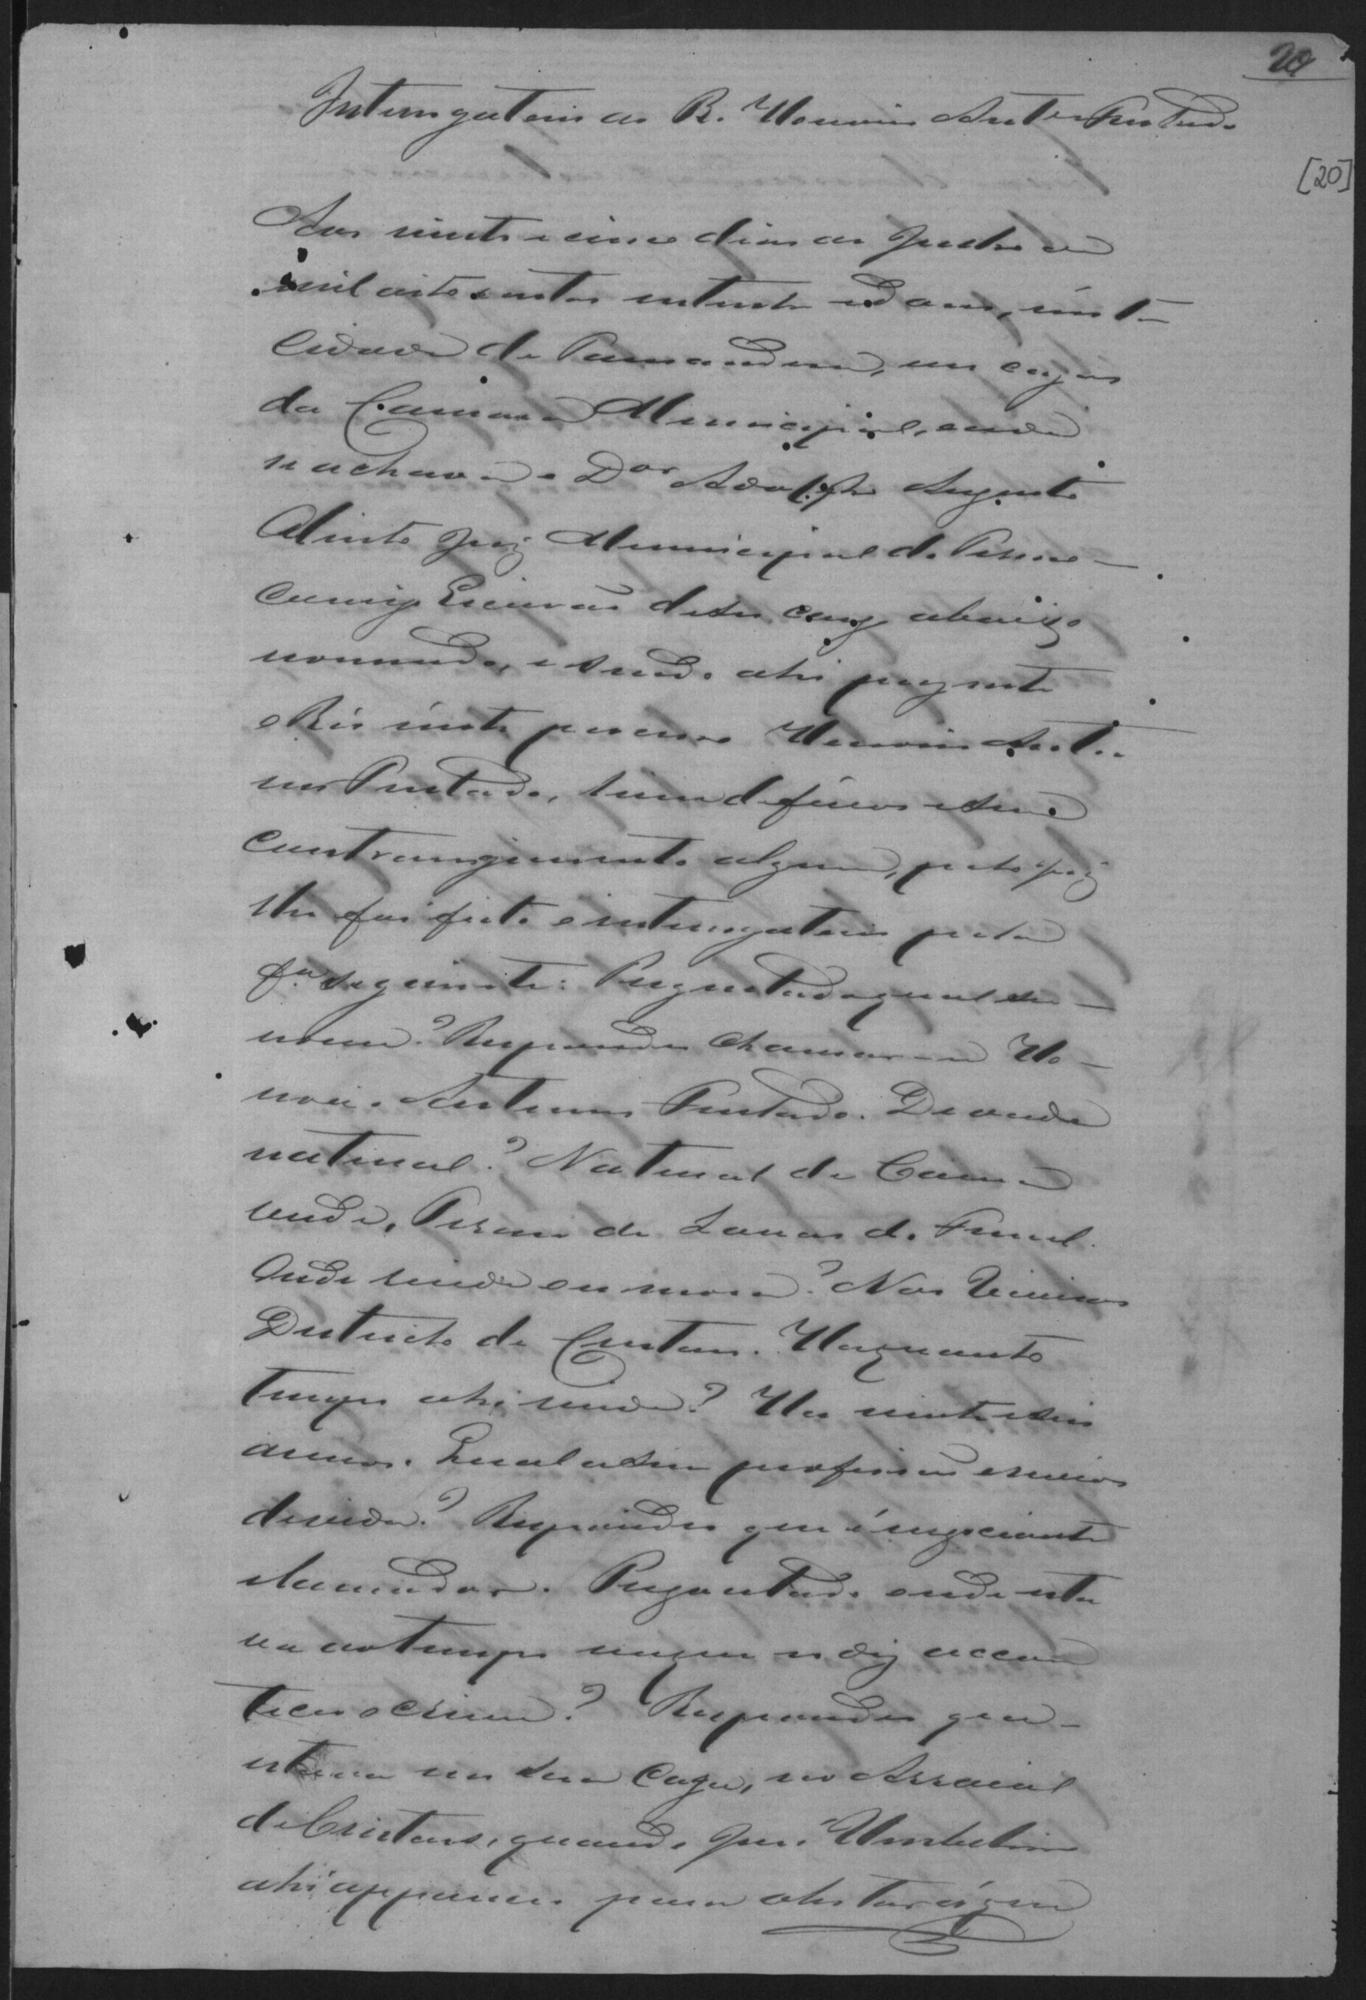 20
Interrogatorio ao R. Honorio Antunes Furtado
[20]
Aos vinte e cinco dias de Junho de
mil oitocentos setenta e dous, n'esta
Cidade de em casas
da Camara Municipal, onde
se achava o Dor Adolpho Augusto
Olinto Juiz Municipal do Termo
comigo Escrivão de seu cargo abaixo
nomeado, e sendo ahi prezente
o Réo n'este processo Honorio Antu-
nes Furtado, livre de ferros e sem
constrangimento algum, pelo Juiz
lhe foi feito o interrogatorio pela
fa seguinte: Perguntado qual seu
nome? Respondeu chamar-se Ho-
norio Antunes Furtado. De onde
natural? Natural de
Onde reside ou mora? Nos
Districto de Cristaes. Ha quanto
tempo ahi reside? Ha vinte e seis
annos. Qual a sua profissão e meios
de vida? Respondeu que é negociante
e lavrador. Perguntado onde esta
va ao tempo em que se diz aconte
ceu o crime? Respondeu que
estava em sua caza, no Arraial
de Cristaes, quando José Umbelino
ahi appareceu para